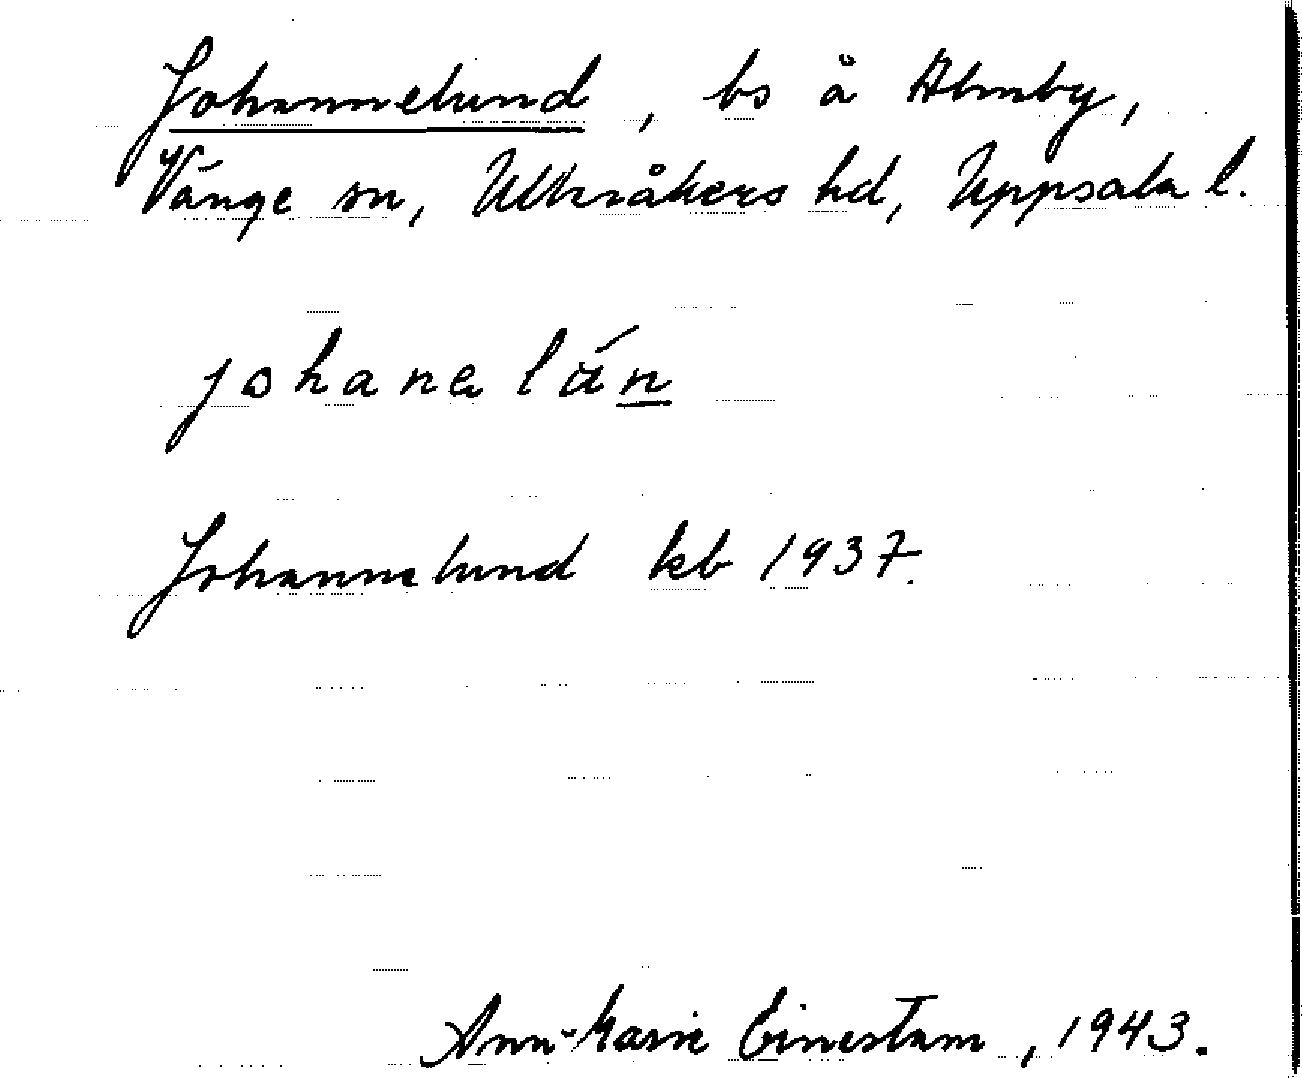 Johannelund, bs å Almby,
Vänge sn, Ulleråkers hd, Uppsala l.
johanelán
Johannelund kb 1937.
Ann-Marie Einestam, 1943.